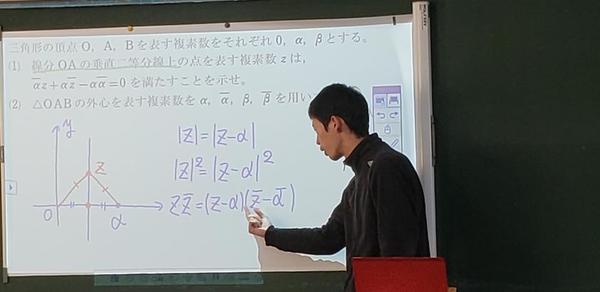 三角形の頂点 O, A, B を表す複素数をそれぞれ 0, α, β とする。
(1) 線分 OA の垂直二等分線上の点を表す複素数 z は,
ᾱz + αz̄ − αᾱ = 0 を満たすことを示せ。
(2) △OAB の外心を表す複素数を α, ᾱ, β, β̄ を用い
y
z
O
α
|z| = |z−α|
|z|² = |z−α|²
zz̄ = (z−α)(z̄−ᾱ)